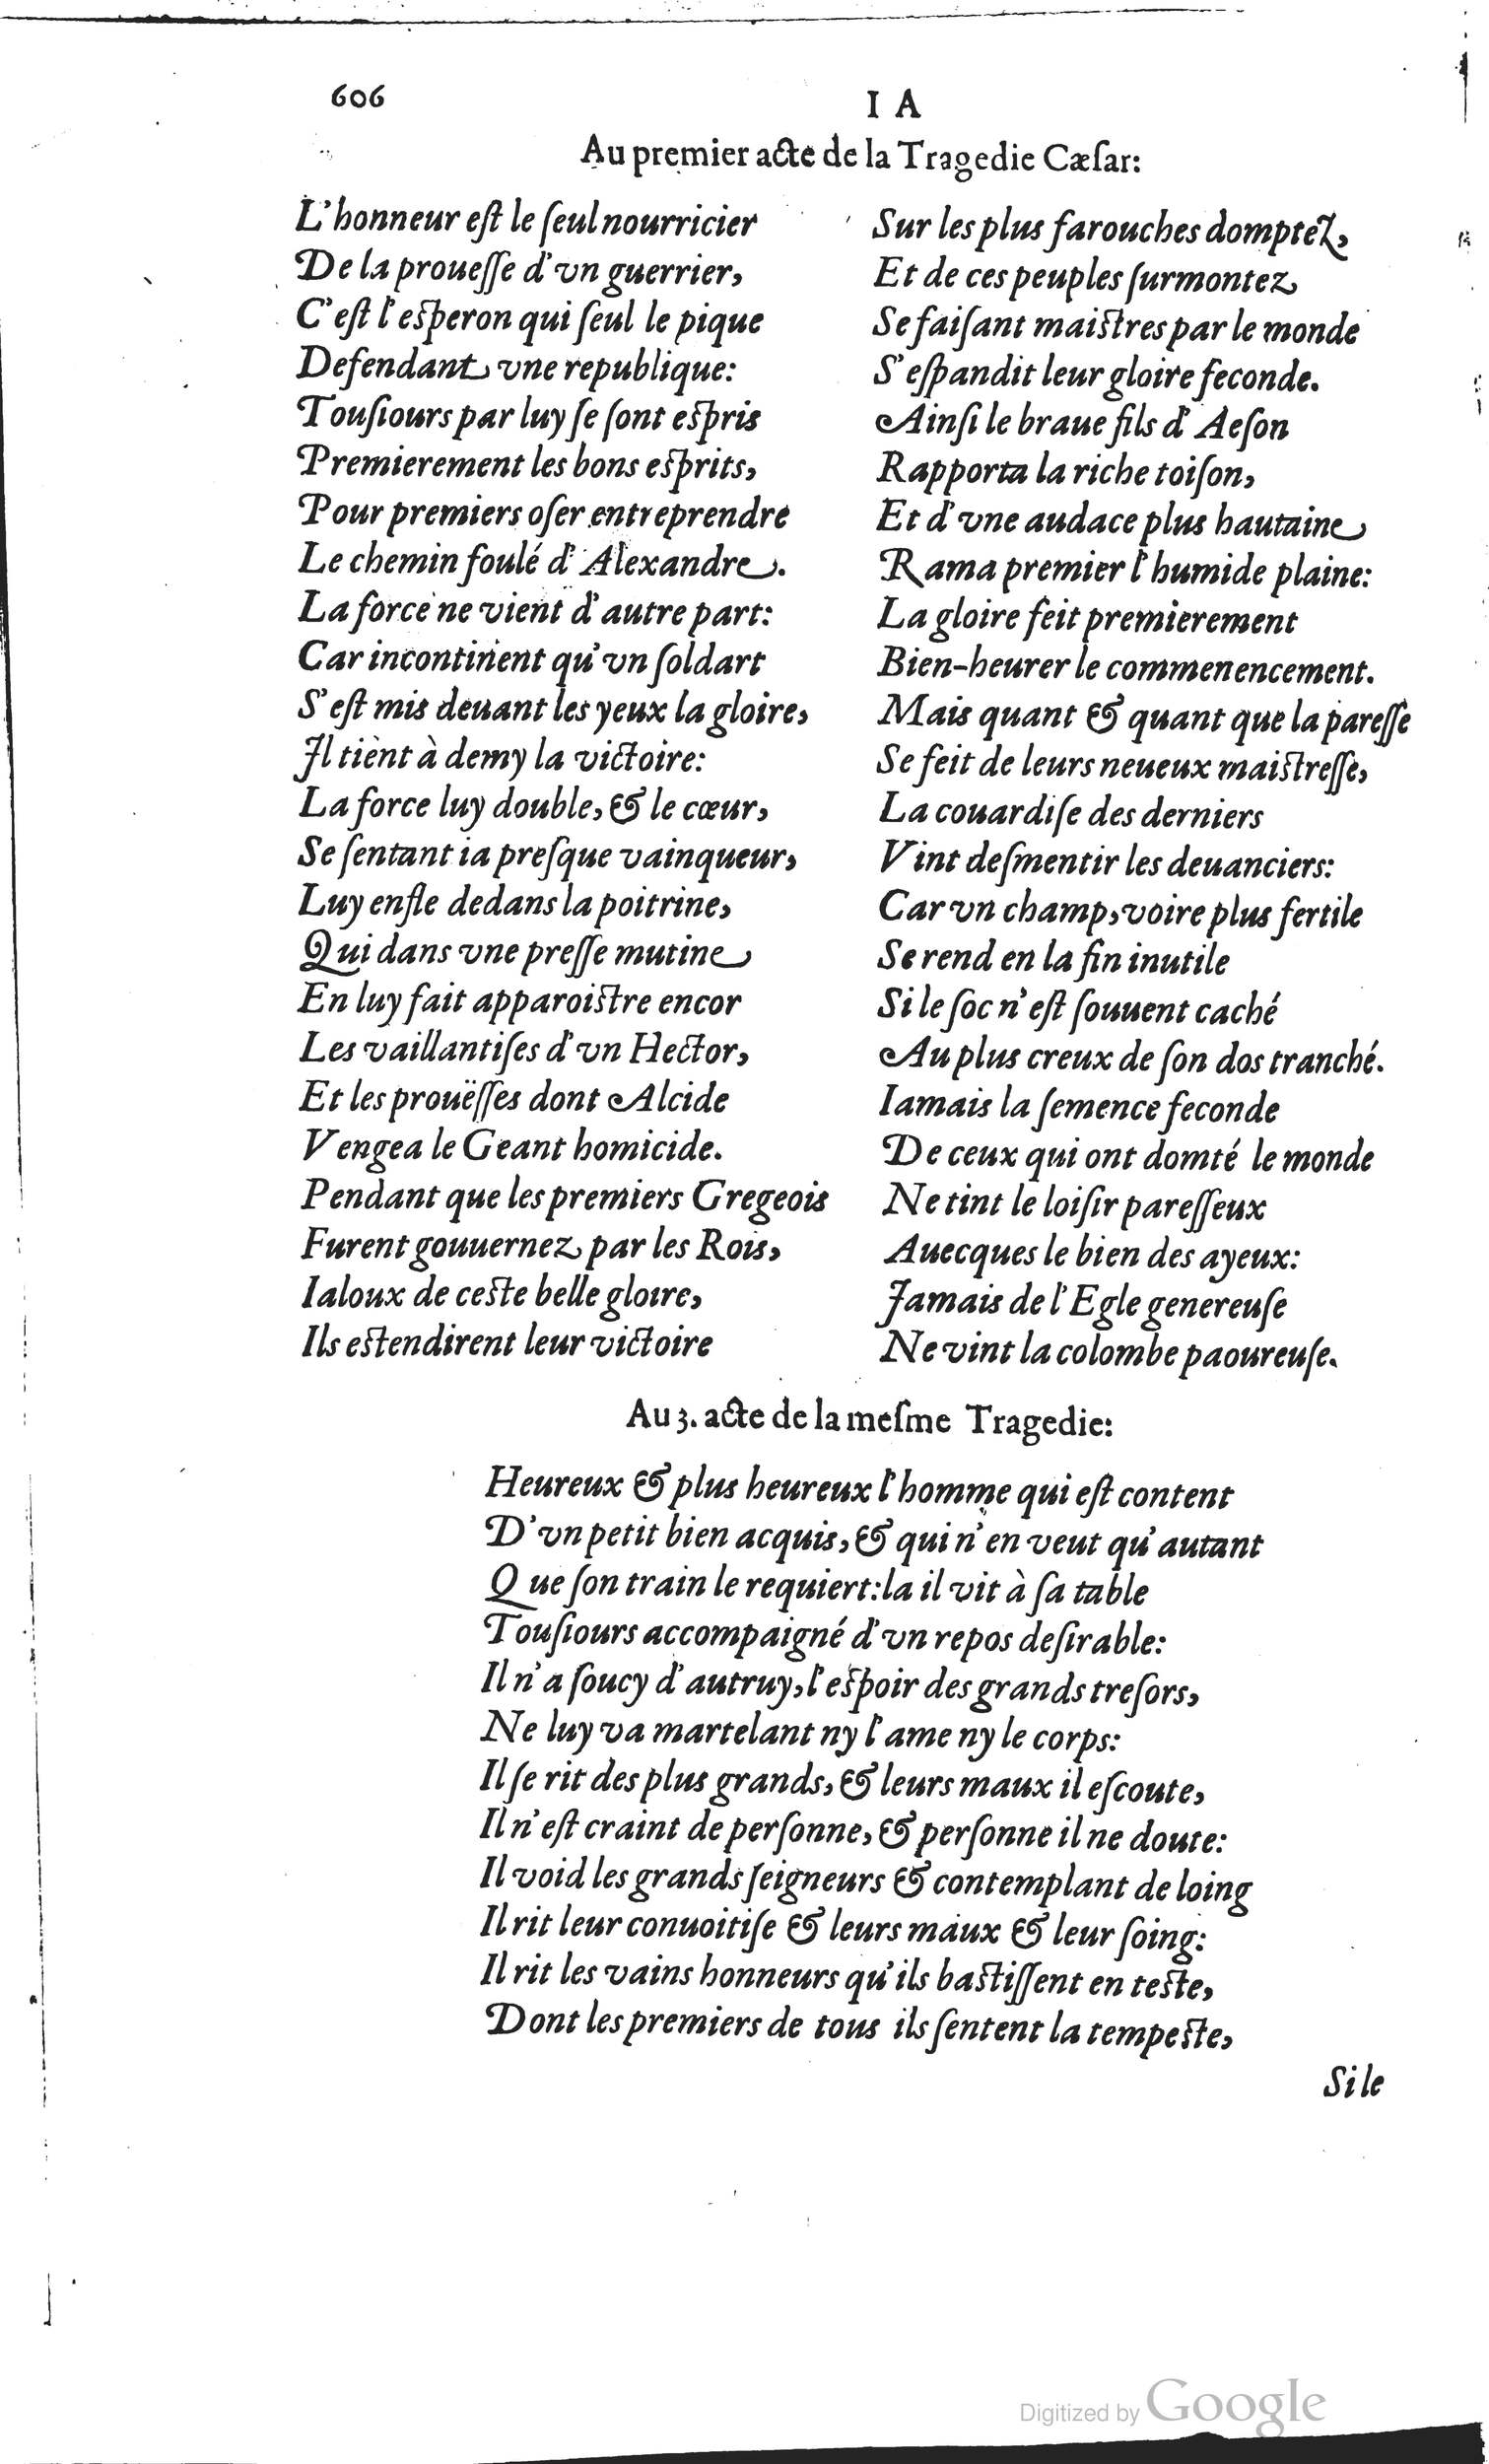 606
I A
Au premier acte de la Tragedie Cæſar:
L'honneur eſt le ſeul nourricier
De la proueſſe d'vn guerrier,
C'eſt l'eſperon qui ſeul le pique
Defendant vne republique:
Touſiours par luy ſe ſont eſpris
Premierement les bons eſprits,
Pour premiers oſer entreprendre
Le chemin foulé d'Alexandre.
La force ne vient d'autre part:
Car incontinent qu'vn ſoldart
S'eſt mis deuant les yeux la gloire,
Il tient à demy la victoire:
La force luy double, & le cœur,
Se ſentant ia preſque vainqueur,
Luy enfle dedans la poitrine,
Qui dans vne preſſe mutine
En luy fait apparoiſtre encor
Les vaillantiſes d'vn Hector,
Et les prouëſſes dont Alcide
Vengea le Geant homicide.
Pendant que les premiers Gregeois
Furent gouuernez par les Rois,
Ialoux de ceſte belle gloire,
Ils eſtendirent leur victoire
Sur les plus farouches domptez,
Et de ces peuples ſurmontez
Se faiſant maiſtres par le monde
S'eſpandit leur gloire feconde.
Ainſi le braue fils d'Aeſon
Rapporta la riche toiſon,
Et d'vne audace plus hautaine
Rama premier l'humide plaine:
La gloire feit premierement
Bien-heurer le commenencement.
Mais quant & quant que la pareſſe
Se feit de leurs neueux maiſtreſſe,
La couardiſe des derniers
Vint deſmentir les deuanciers:
Car vn champ, voire plus fertile
Se rend en la fin inutile
Si le ſoc n'eſt ſouuent caché
Au plus creux de ſon dos tranché.
Iamais la ſemence feconde
De ceux qui ont domté le monde
Ne tint le loiſir pareſſeux
Auecques le bien des ayeux:
Jamais de l'Egle genereuſe
Ne vint la colombe paoureuſe.
Au 3. acte de la meſme Tragedie:
Heureux & plus heureux l'homme qui eſt content
D'vn petit bien acquis, & qui n'en veut qu'autant
Que ſon train le requiert: la il vit à ſa table
Touſiours accompaigné d'vn repos deſirable:
Il n'a ſoucy d'autruy, l'eſpoir des grands treſors,
Ne luy va martelant ny l'ame ny le corps:
Il ſe rit des plus grands, & leurs maux il eſcoute,
Il n'eſt craint de perſonne, & perſonne il ne doute:
Il void les grands ſeigneurs & contemplant de loing
Il rit leur conuoitiſe & leurs maux & leur ſoing:
Il rit les vains honneurs qu'ils baſtiſſent en teſte,
Dont les premiers de tous ils ſentent la tempeſte,
Si le
Digitized by Google